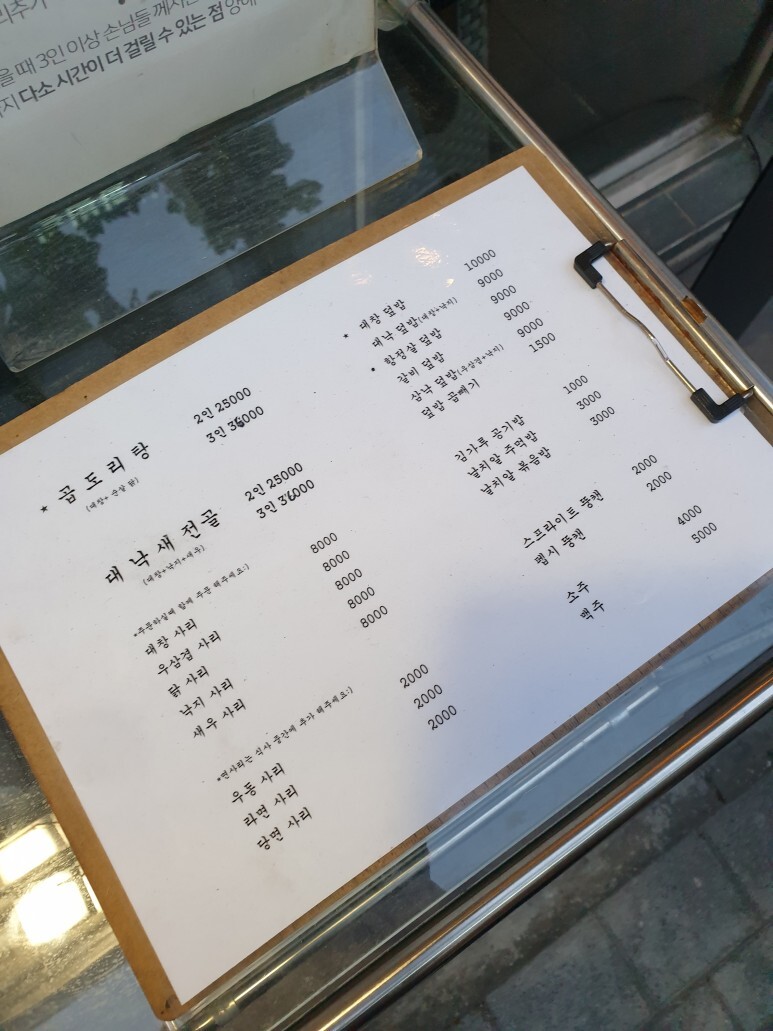 을 때 3인 이상 손님들 께서는
다소 시간이 더 걸릴 수 있는 점 양해
★ 곱도리탕
2인 25000
3인 36000
(대창+순살 닭)
대낙새전골
2인 25000
3인 36000
(대창+낙지+새우)
*주문하실때 함께 주문 해주세요:)
대창 사리 8000
우삼겹 사리 8000
닭 사리 8000
낙지 사리 8000
새우 사리 8000
*면사리는 식사 중간에 추가 해주세요:)
우동 사리 2000
라면 사리 2000
당면 사리 2000
★ 대창 덮밥 10000
대낙 덮밥(대창+낙지) 9000
★ 항정살 덮밥 9000
갈비 덮밥 9000
삼낙 덮밥(우삼겹+낙지) 9000
덮밥 곱빼기 1500
김가루 공기밥 1000
날치알 주먹밥 3000
날치알 볶음밥 3000
스프라이트 뚱캔 2000
펩시 뚱캔 2000
소주 4000
맥주 5000